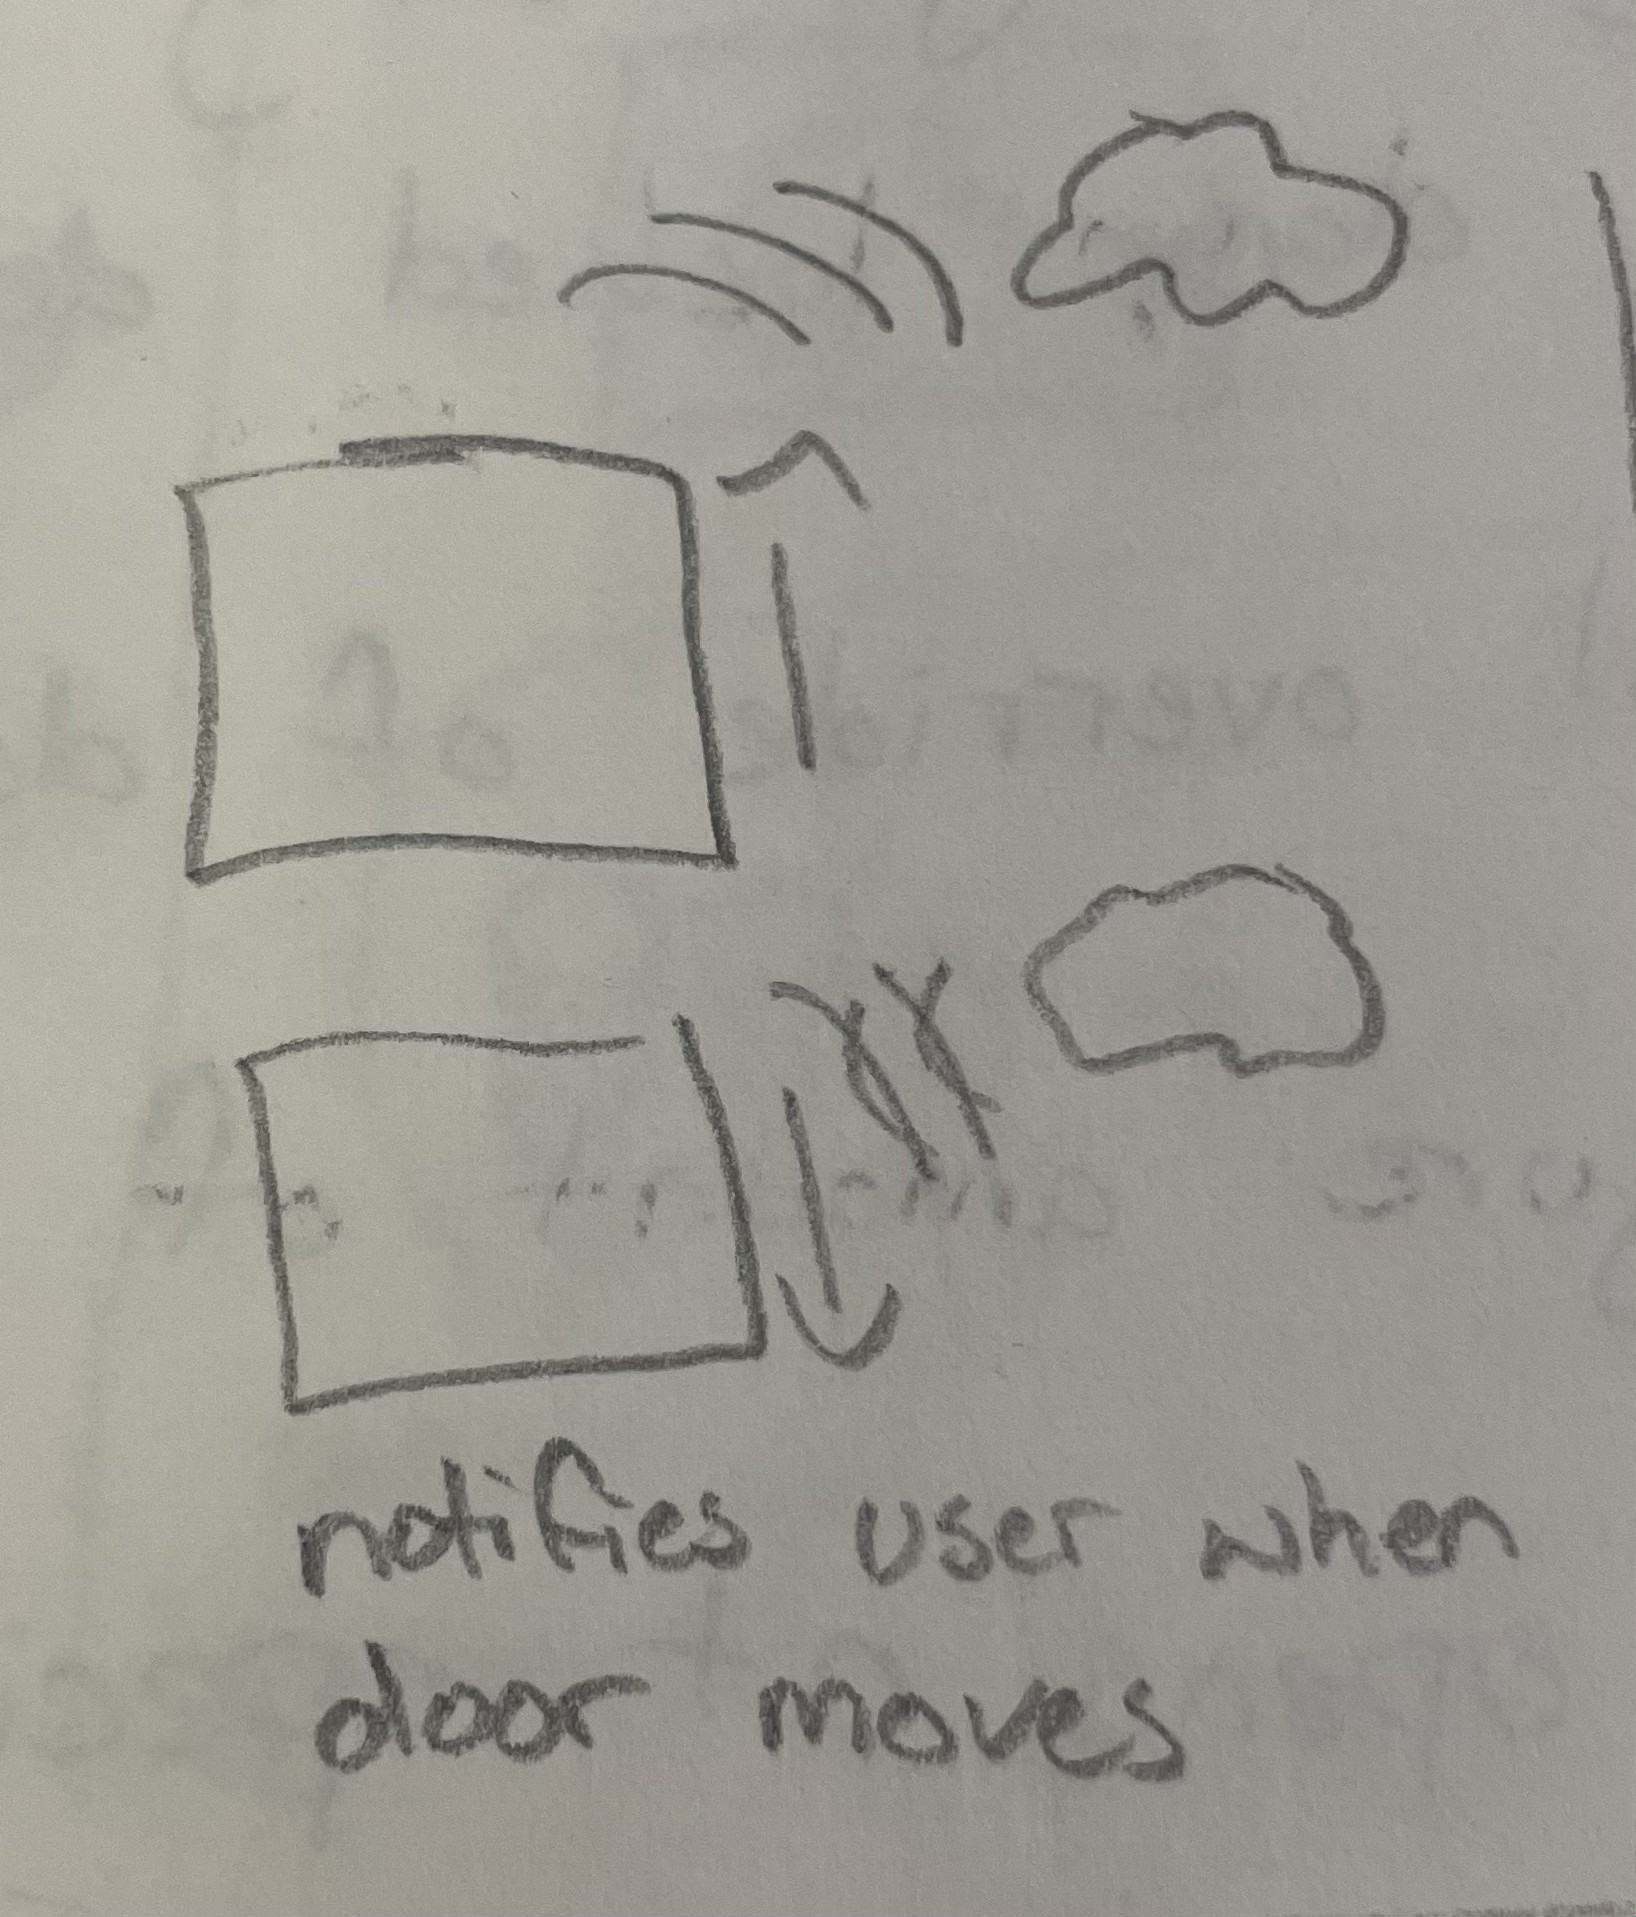 notifies user when
door moves